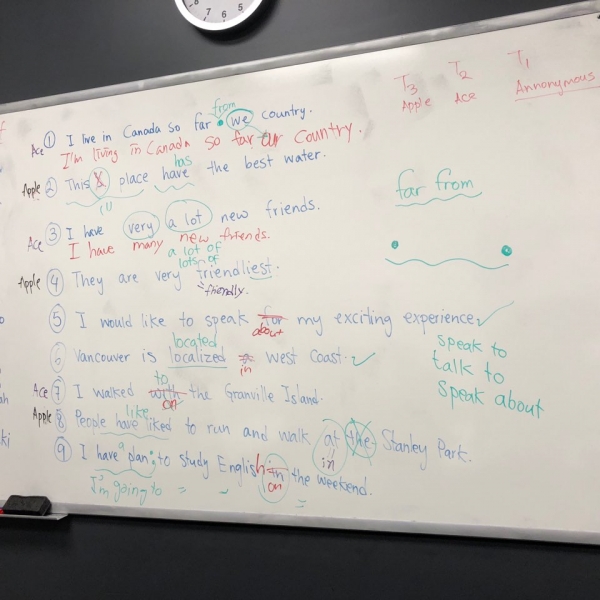 8 7 6 5
T3 T2 T1
Apple Ace Annonymous
from
Ace ① I live in Canada so far we country.
I'm living in Canada so far our country.
has
Apple ② This place have the best water.
③ I have very a lot new friends.
Ace I have many new friends.
a lot of
lots of
Apple ④ They are very friendliest.
friendly.
⑤ I would like to speak for my exciting experience.
about
located
⑥ Vancouver is localized west Coast.
in
to
Ace ⑦ I walked with the Granville Island.
on
like
Apple ⑧ People have liked to run and walk at the Stanley Park.
in
⑨ I have plan to study English in the weekend.
a
on
I'm going to =
far from
speak to
talk to
speak about
ah
ki